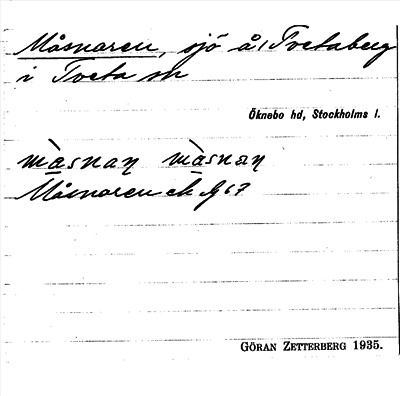 Måsnaren, sjö å, Tvetaberg
i Tveta sn
Öknebo hd, Stockholms l.
màsnaɳ màsnəɳ
Måsnaren ek bl 67
GÖRAN ZETTERBERG 1935.